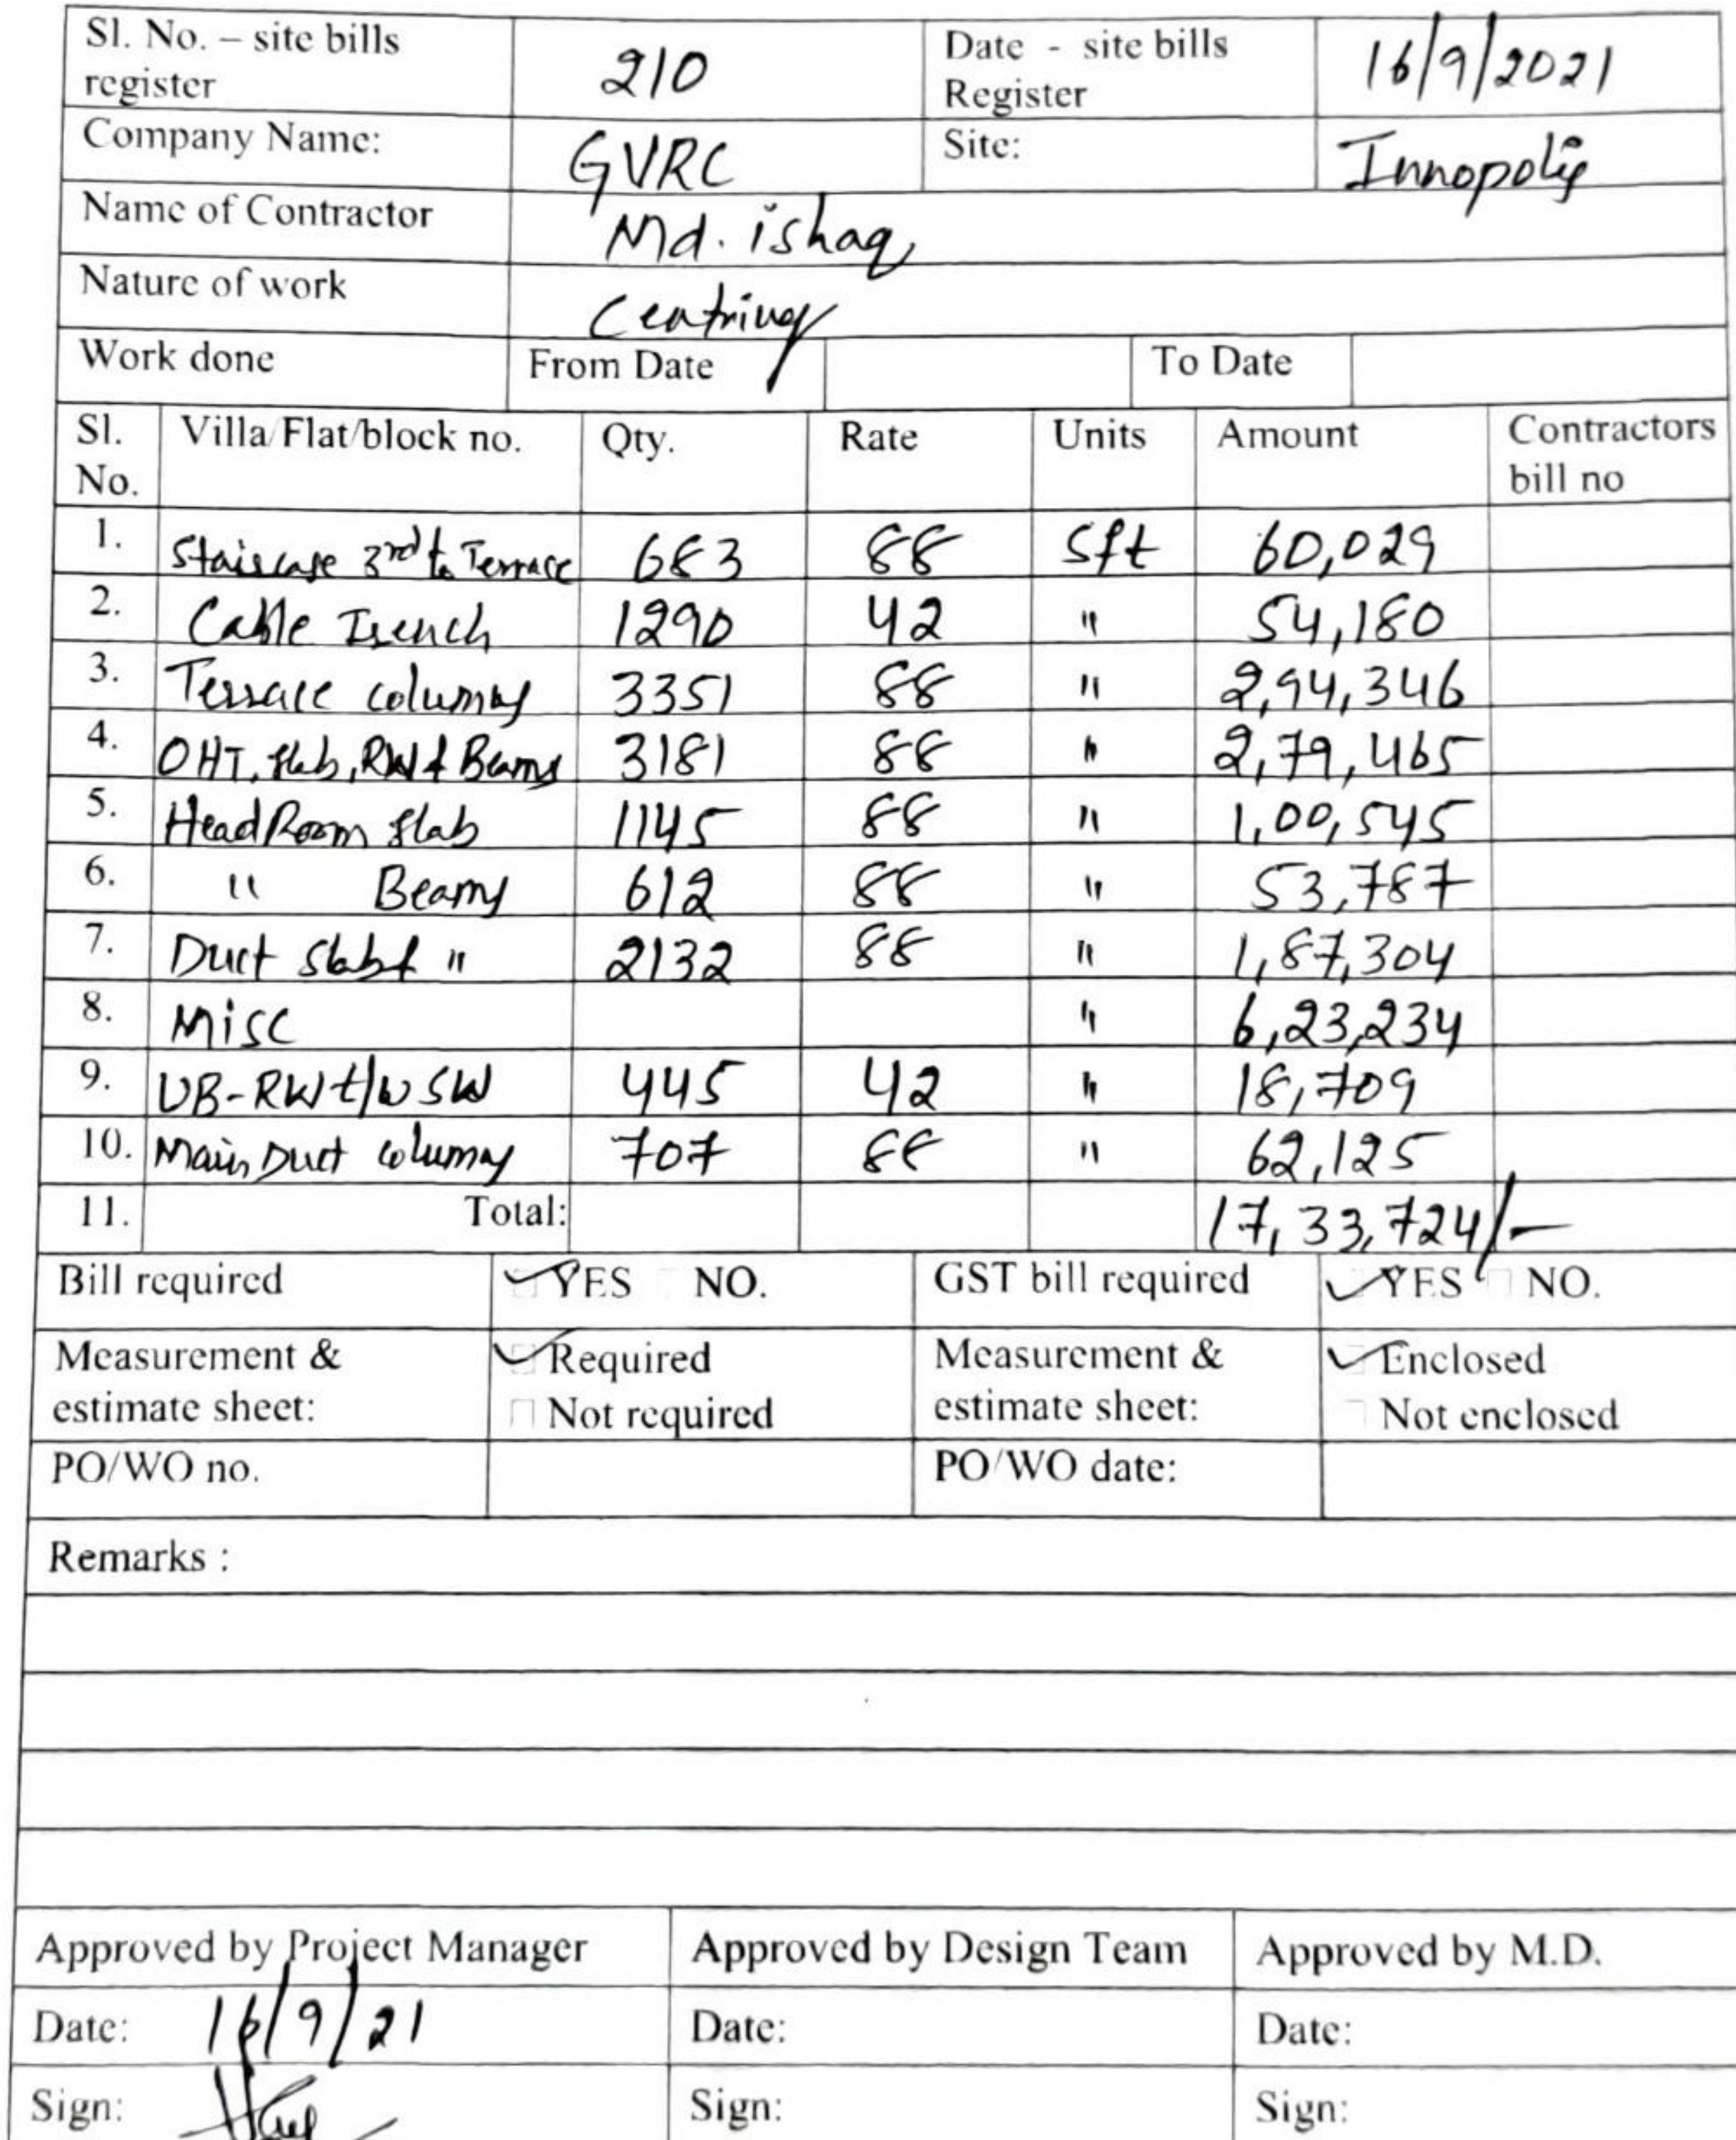 Sl. No. – site bills register 210 Date - site bills Register 16/9/2021
Company Name: GVRC Site: Innopolis
Name of Contractor Md. ishaq
Nature of work Centring
Work done From Date To Date
Sl. No. Villa/Flat/block no. Qty. Rate Units Amount Contractors bill no
1. Staircase 3rd to Terrace 683 88 Sft 60,029
2. Cable Trench 1290 42 " 54,180
3. Terrace columns 3351 88 " 2,94,346
4. OHT, slab, RW & Beams 3181 88 " 2,79,465
5. Head Room slab 1145 88 " 1,00,545
6. " Beams 612 88 " 53,787
7. Duct slab & " 2132 88 " 1,87,304
8. Misc " 6,23,234
9. UB-RW t/w SW 445 42 " 18,709
10. Main Duct columns 707 88 " 62,125
11. Total: 17,33,724/-
Bill required YES NO. GST bill required YES NO.
Measurement & estimate sheet: Required Not required Measurement & estimate sheet: Enclosed Not enclosed
PO/WO no. PO/WO date:
Remarks :
Approved by Project Manager Approved by Design Team Approved by M.D.
Date: 16/9/21 Date: Date:
Sign: Sign: Sign: